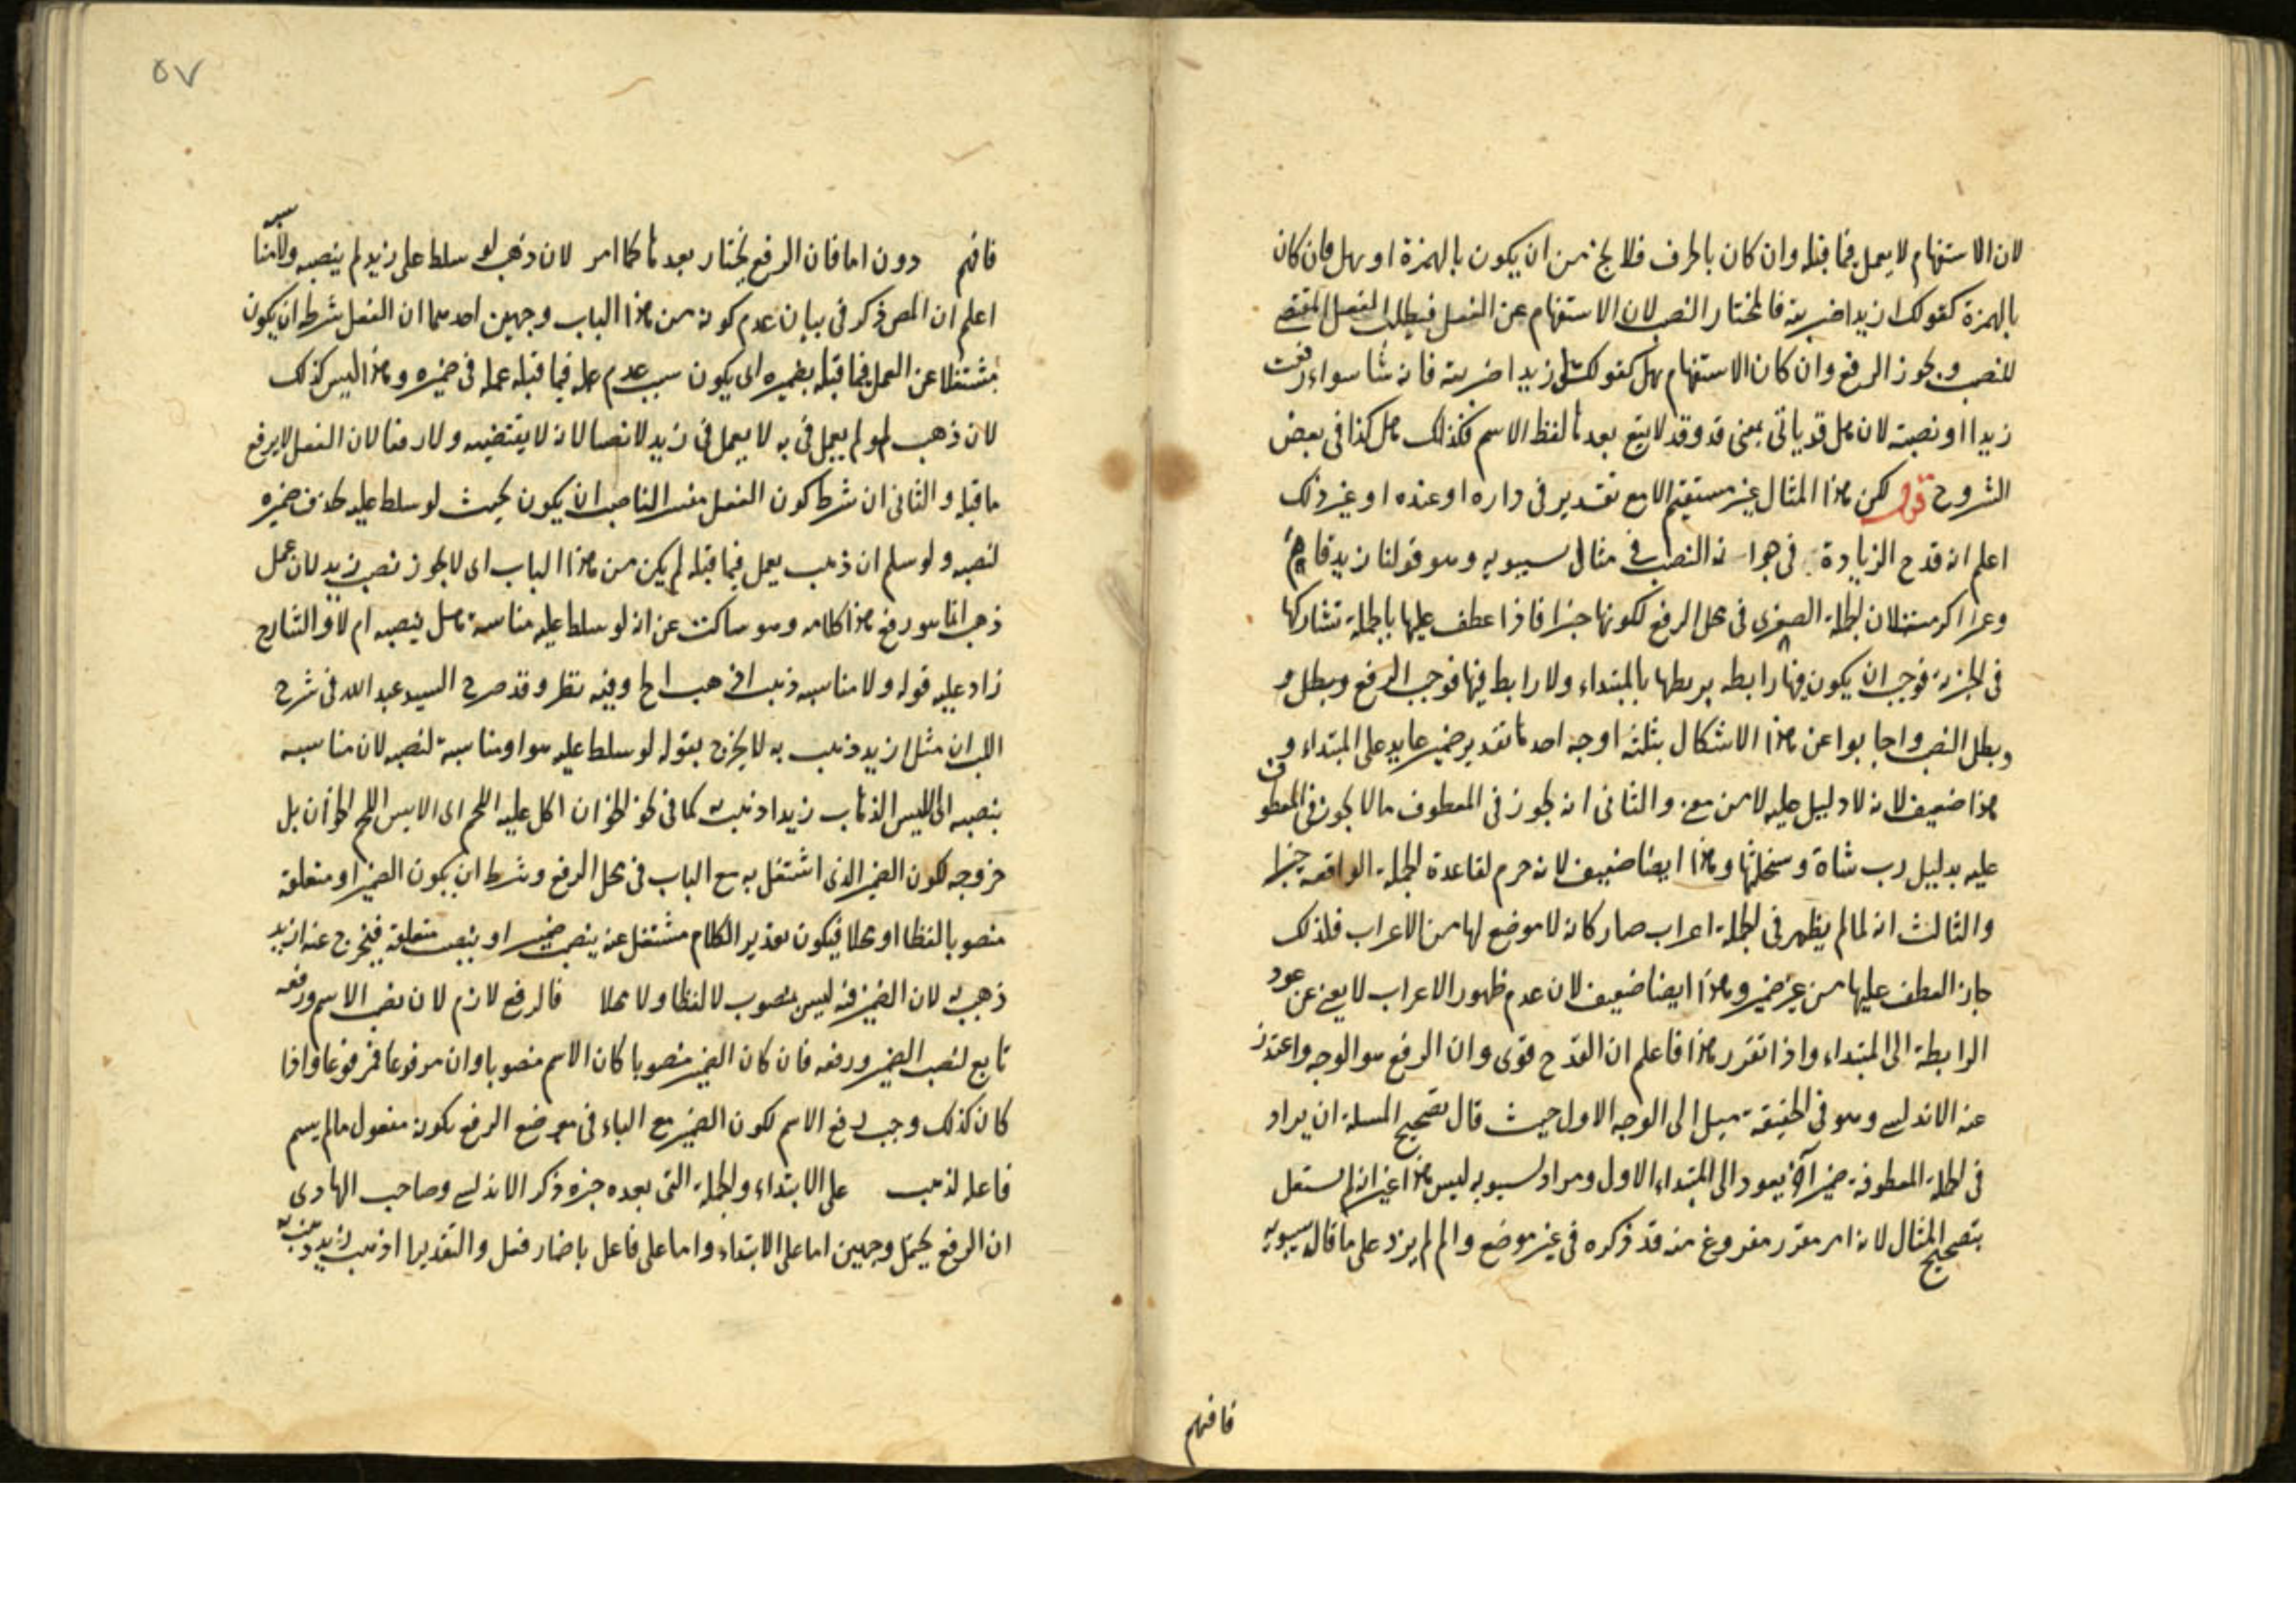 لان الاستفهام لا يعمل فيما قبله وان كان بالحرف فلا يخ من ان يكون بالهمزة او بهل فان كان
بالهمزة كقولك ازيدا ضربته فالمختار النصب لان الاستفهام عن الفعل فيطلب الفعل المقتضى
للنصب ويجوز الرفع وان كان الاستفهام بهل كقولك هل زيدا ضربته فانه شا سواء رفعت
زيدا او نصبته لان هل قد ياتى بمعنى قد وقد لا يقع بعدها لفظ الاسم فكذلك هل كذا فى بعض
الشروح قوله لكن هذا المثال غير مستقيم الا مع تقدير فى داره او عنده او غير ذلك
اعلم انه قدح الزيادة فى جواز النصب فى مثال سيبويه وهو قولنا زيد قام
وعمرا اكرمته لان الجملة الصغرى فى محل الرفع لكونها خبرا فاذا عطف عليها بالجملة تشاركها
فى الخبرية فوجب ان يكون فيها رابطه يربطها بالمبتداء ولا رابط فيها فوجب الرفع وبطل و
وبطل النصب واجابوا عن هذا الاشكال بثلثة اوجه احدها تقدير ضمير عايد على المبتداء و
هذا ضعيف لانه لا دليل عليه لا من معنى والثانى انه يجوز فى المعطوف ما لا يجوز فى المعطوف
عليه بدليل رب شاة وسخلتها وهذا ايضا ضعيف لانه خرم لقاعدة الجملة الواقعه خبرا
والثالث انه لما لم يظهر فى الجملة اعراب صار كانه لا موضع لها من الاعراب فلذلك
جاز العطف عليها من غير ضمير وهذا ايضا ضعيف لان عدم ظهور الاعراب لا يغنى عن عود
الرابطة الى المبتداء واذا تقرر هذا فاعلم ان القدح قوى وان الرفع هو الوجه واعتذر
عنه الاندلسى وهو فى الحقيقة ميل الى الوجه الاول حيث قال تصحيح المسلة ان يراد
فى الجملة المعطوفة ضميرا آخر يعود الى المبتداء الاول ومراد سيبويه ليس هذا غير انه لم يشتغل
بتصحيح المثال لانه امر مقرر مفروغ منه قد ذكره فى غير موضع والم لم يزد على ما قال سيبويه
فافهم
٥٧
فافهم دون اما فان الرفع يختار بعدها كما امر لان ذهب لو سلط على زيد لم ينصبه ولا مناسبه
اعلم ان المص ذكر فى بيان عدم كونه من هذا الباب وجهين احدهما ان الفعل شرطه ان يكون
مشتغلا عن العمل فيما قبله بضميره اى يكون سبب عدم عمله فيما قبله عمله فى ضميره وهذا ليس كذلك
لان ذهب لو لم يعمل فى به لا يعمل فى زيد لا نصبا لانه لا يقتضيه ولا رفعا لان الفعل لا يرفع
ما قبله والثانى ان شرط كون الفعل مفسر الناصب ان يكون بحيث لو سلط عليه بحذف ضميره
لنصبه ولو سلم ان ذهب يعمل فيما قبله لم يكن من هذا الباب اى لا يجوز نصب زيد لان عمل
ذهب انما هو رفع هذا كلامه وهو ساكت عن انه لو سلط عليه مناسبه هل ينصبه ام لا والشارح
زاد عليه قوله ولا مناسبه ذهب اذهب الخ وفيه نظر وقد صرح السيد عبد الله فى شرح
اللب ان مثل ازيد ذهب به لا يخرج بقوله لو سلط عليه هو او مناسبه لنصبه لان مناسبه
ينصبه اى اليس الذهاب زيدا ذهبت كما فى نحو الخوان اكل عليه اللحم اى الابس اللحم الخوان بل
خروجه لكون الضمير الذى اشتغل به مع الباب فى محل الرفع وشرط ان يكون الضمير او متعلقه
منصوبا لفظا او محلا فيكون تقدير الكلام مشتغل عنه بنصب ضميره او بنصب متعلقه فيخرج عنه ازيد
ذهب به لان الضمير فيه ليس بمنصوب لا لفظا ولا محلا فالرفع لازم لان نصب الاسم ورفعه
تابع لنصب الضمير ورفعه فان كان الضمير منصوبا كان الاسم منصوبا وان مرفوعا فمرفوعا واذا
كان كذلك وجب رفع الاسم لكون الضمير مع الباء فى موضع الرفع بكونه مفعول ما لم يسم
فاعله لذهب على الابتداء والجملة التى بعده خبره ذكر الاندلسى وصاحب الهادى
ان الرفع يحتمل وجهين اما على الابتداء واما على فاعل باضمار فعل والتقدير اذهب زيد ذهب به